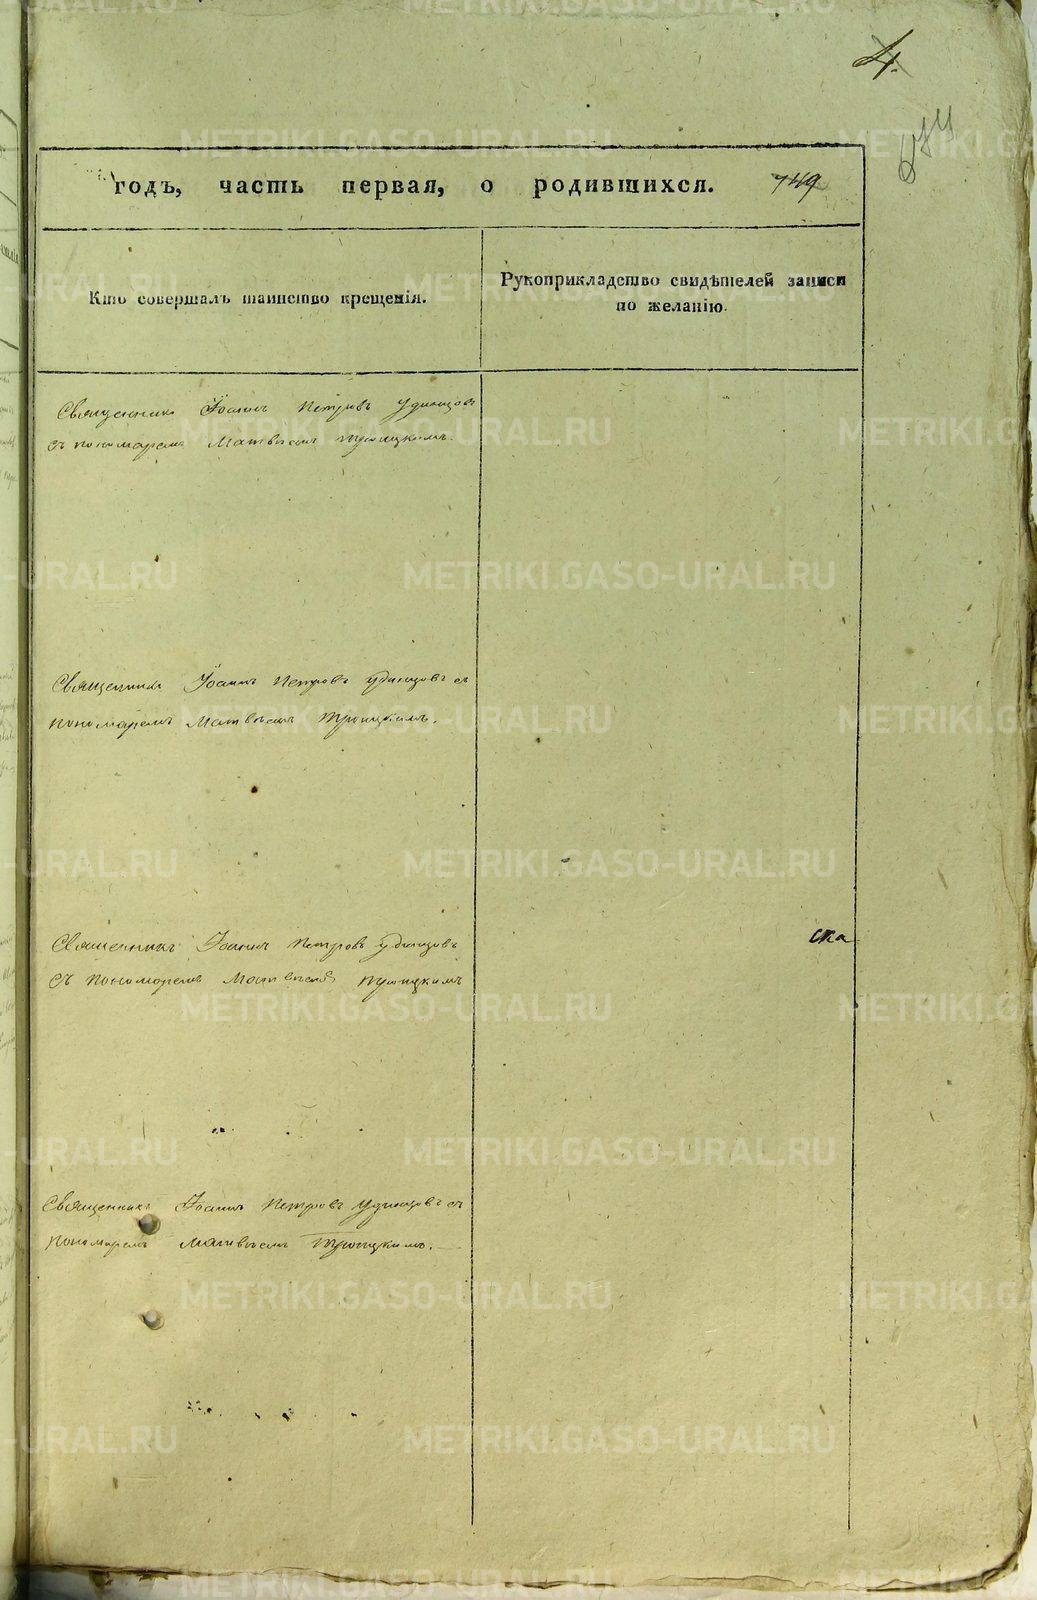 4.
749
годъ, часть первая, о родившихся.
Кто совершалъ таинство крещенія.
Рукоприкладство свидѣтелей записи
по желанію.
Священникъ Іоаннъ Петровъ Удинцовъ
съ пономаремъ Матвѣемъ Троицкимъ.
Священникъ Іоаннъ Петровъ Удинцовъ съ
пономаремъ Матвѣемъ Троицкимъ.
Священникъ Іоаннъ Петровъ Удинцовъ
съ пономаремъ Матвѣемъ Троицкимъ
ска
Священникъ Іоаннъ Петровъ Удинцовъ съ
пономаремъ Матвѣемъ Троицкимъ.
METRIKI.GASO-URAL.RU